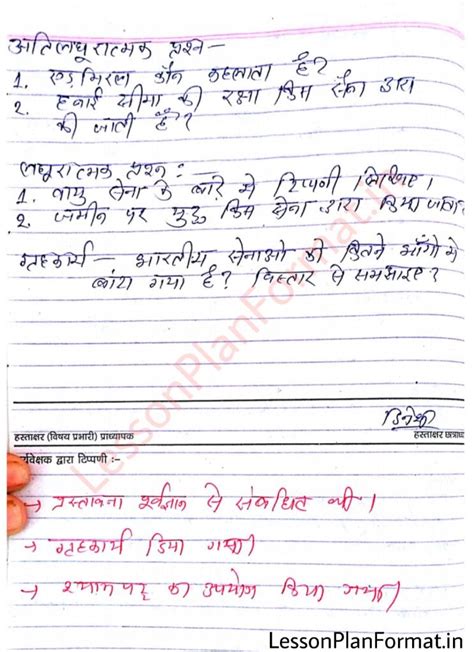 अतिलघूरात्मक प्रश्न —
1. एडमिरल कौन कहलाता है?
2. हवाई सीमा की रक्षा किस सेना द्वारा
की जाती है?
लघूरात्मक प्रश्न :—
1. वायु सेना के बारे मे टिप्पणी लिखिए।
2. जमीन पर युद्ध किस सेना द्वारा किया जाता
गृहकार्य — भारतीय सेनाओ को कितने भागो मे
बांटा गया है? विस्तार से समझाइए?
LessonPlanFormat.in
हस्ताक्षर (विषय प्रभारी) प्राध्यापक
हस्ताक्षर छात्राध
र्यवेक्षक द्वारा टिप्पणी :-
→ प्रस्तावना पूर्वज्ञान से संबन्धित थी।
→ गृहकार्य दिया गया।
→ श्यामपट्ट का उपयोग किया गया।
LessonPlanFormat.in